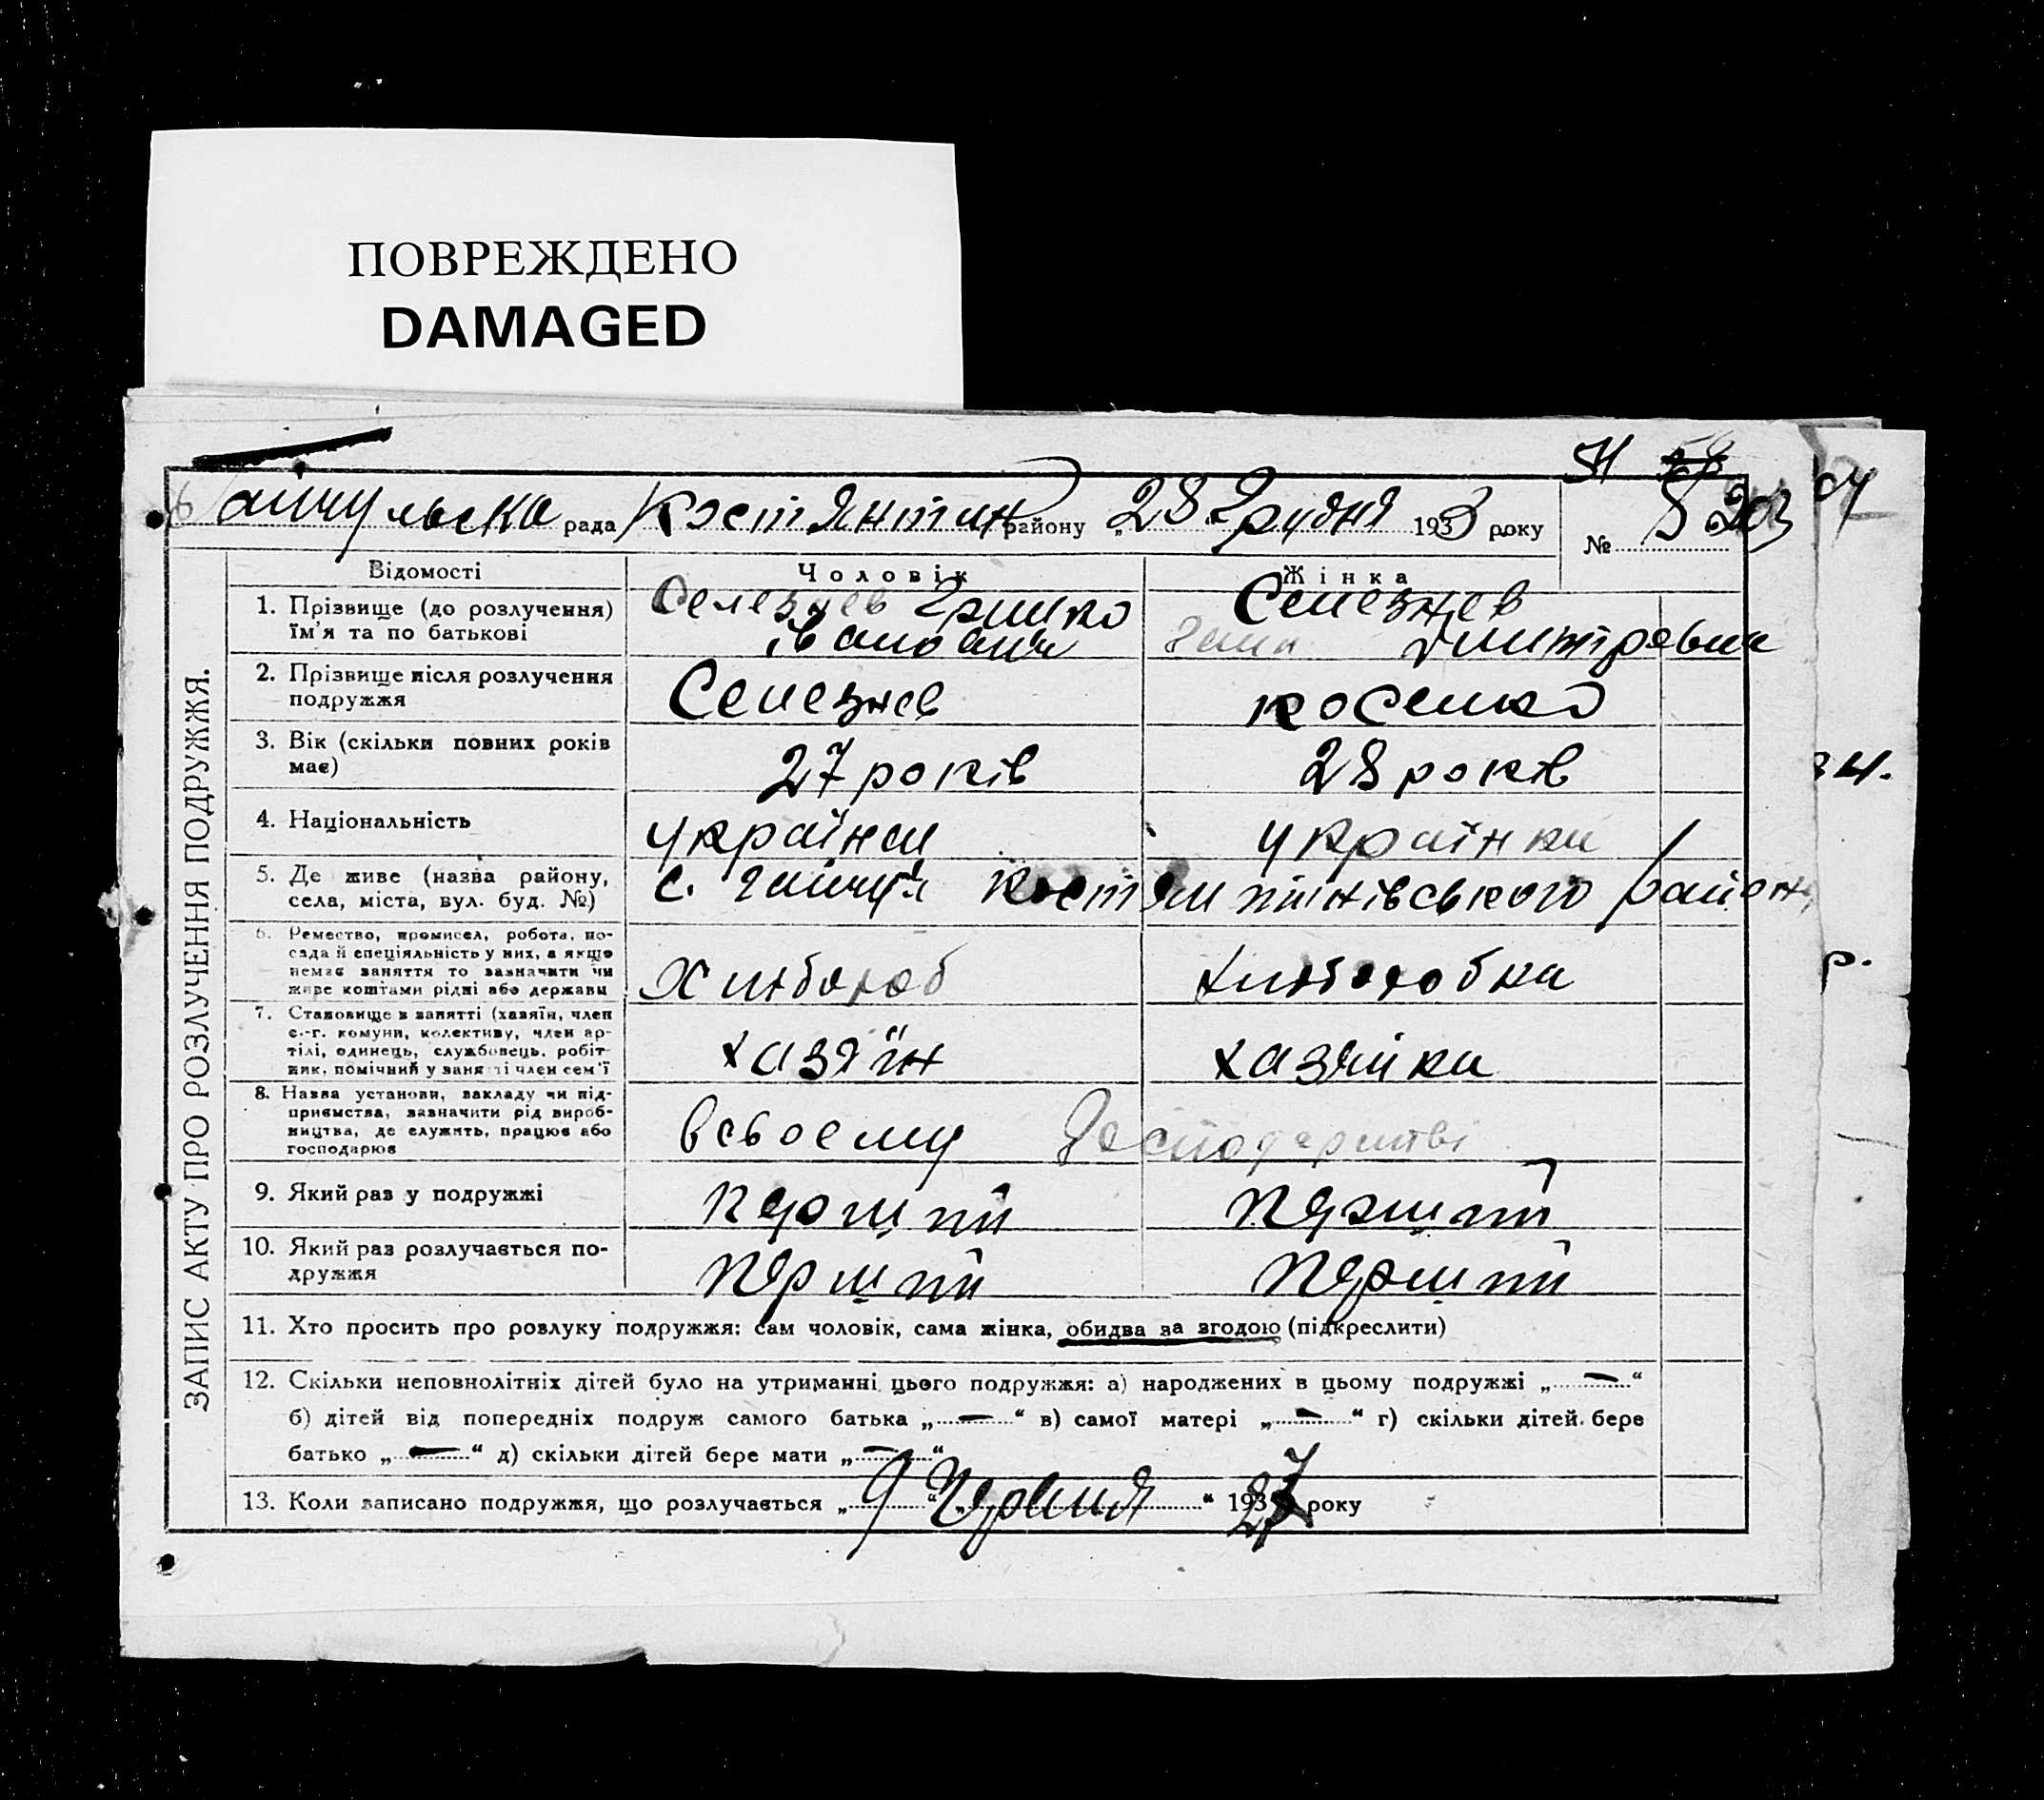 ПОВРЕЖДЕНО
DAMAGED
54
Гайчульська рада Костянтин району „28 Грудня 1933 року
№ 8 203
ЗАПИС АКТУ ПРО РОЗЛУЧЕННЯ ПОДРУЖЖЯ.
Відомості Чоловік Жінка
1. Прізвище (до розлучення) Селезнев Гришко Селезнев
ім'я та по батькові Іванович Дмитровна
2. Прізвище після розлучення
подружжя Селезнев Косенко
3. Вік (скільки повних років
має) 27 років 28 років
4. Національність українец українка
5. Де живе (назва району,
села, міста, вул. буд. №) с. Гайчул Костянтинівського району
6. Ремество, промисел, робота, по-
сада й спеціяльність у них, а якщо
немає заняття то зазначити чи
живе коштами рідні або держави Хлибороб Хлиборобка
7. Становище в занятті (хазяїн, член
с.-г. комуни, колективу, член ар-
тілі, одинець, службовець, робіт-
ник, помічний у занятті член сем'ї хазяїн хазяйка
8. Назва установи, закладу чи під-
приємства, зазначити рід вироб-
ництва, де служить, працює або
господарює всвоему господарстві
9. Який раз у подружжі перший перший
10. Який раз розлучається по-
дружжя перший перший
11. Хто просить про розлуку подружжя: сам чоловік, сама жінка, обидва за згодою (підкреслити)
12. Скільки неповнолітніх дітей було на утриманні цього подружжя: а) народжених в цьому подружжі „—“
б) дітей від попередніх подруж самого батька „—“ в) самої матері „—“ г) скільки дітей бере
батько „—“ д) скільки дітей бере мати „—“
13. Коли записано подружжя, що розлучається „9“ „Червня“ 1927 року
04
р.